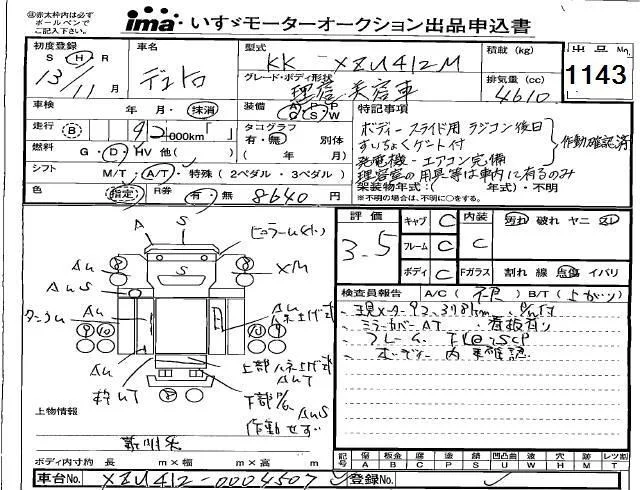 ㊟赤太枠内は必ず
ボールペンで
ご記入下さい。
ima いすゞモーターオークション出品申込書
初度登録 S・H・R
13/11月
車名 デュトロ
型式 KK-XZU412M
積載 (kg)
排気量 (cc) 4610
出品No 1143
グレード・ボディ形状 理容美容車
車検 年 月・抹消
装備 A P P G S W
特記事項
走行 B 92 000km「 」
タコグラフ 有・無 別体 ( 年 月)
燃料 G・D・HV 他( )
シフト M/T・A/T・特殊 (2ペダル・3ペダル)
色 指定 R券 有・無 8640 円
ボディースライド用ラジコン後日
すいちょくゲート付
発電機-エアコン完備
作動確認済
理容室の用具等は車内に有るのみ
架装物年式:( 年式)・不明
※不明の場合は、不明に○をする。
評価 3.5
キャブ C
フレーム C
ボディ C
内装 C
汚れ 破れ ヤニ
Fガラス 割れ 線 点傷 イバリ
検査員報告 A/C( 不良 ) B/T( 上がり )
ミラーカバー AT 看板有り
ボディー内 未確認
A S
ピラーU(小)
AU
AUS
XM
AU
上部ハネ上げ式
AUT
枠UT
下部PG
AUS
作動せず
上物情報
新明和
ボディ内寸約 長 m×幅 m×高 m
記号 傷 A 板金 B 腐 C 塗 P 錆 S 凹凸曲 U 波 W 穴 H 外 M レツ割 T
車台No. XZU412-0004507
登録No.